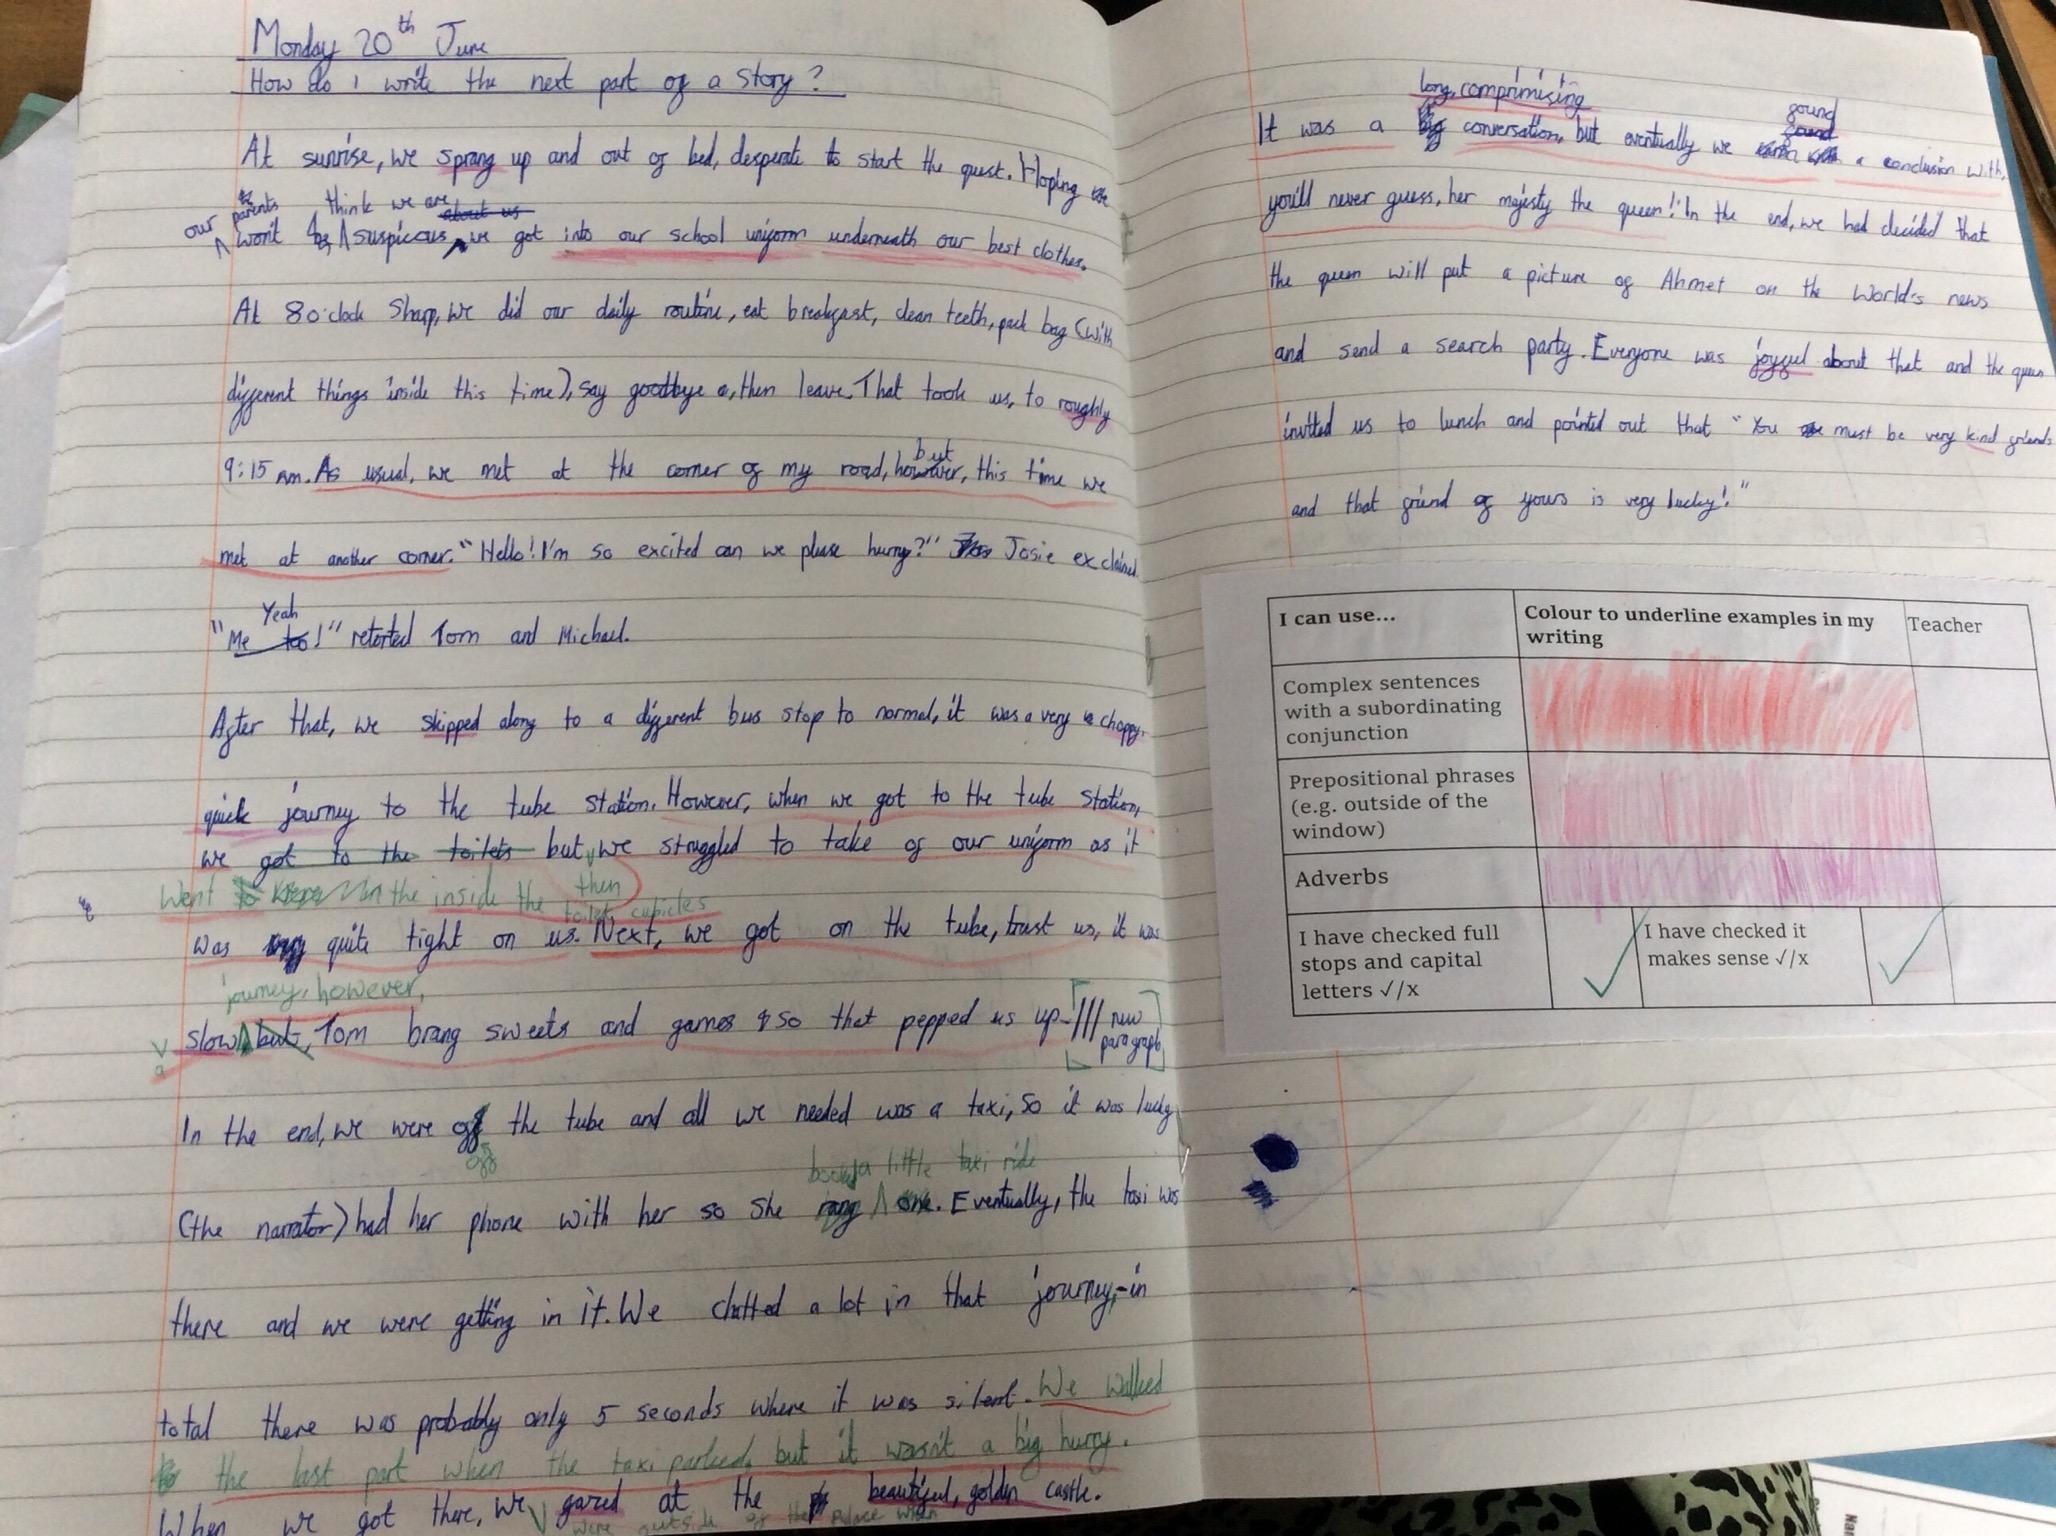 Monday 20th June
How do I write the next part of a story?
At sunrise, we sprang up and out of bed, desperate to start the quest. Hoping
our parents think we are about us
won't suspicous we got into our school uniform underneath our best clothes.
At 8 o'clock Sharp, we did our daily routine, eat breakfast, clean teeth, pack bag (with
different things inside this time), say goodbye, then leave. That took us, to roughly
but
9:15 am. As usual, we met at the corner of my road, however, this time we
met at another corner. "Hello! I'm so excited can we please hurry?" Josie exclaimed
Yeah
"Me too!" retorted Tom and Michael.
After that, we skipped along to a different bus stop to normal, it was a very choppy,
quick journey to the tube station. However, when we got to the tube station,
we got to the toilets but, we struggled to take of our uniform as it
Went in the inside the toilet cubicles then
was quite tight on us. Next, we got on the tube, trust us, it was
journey, however,
a slow but, Tom brang sweets and games so that pepped us up. /// new
paragraph
In the end, we were off the tube and all we needed was a taxi, so it was lucky
off
book a little taxi ride
(the narrator) had her phone with her so she rang one. Eventually, the taxi was
there and we were getting in it. We chatted a lot in that journey, in
total there was probably only 5 seconds where it was silent. We walked
the last part when the taxi parked, but it wasn't a big hurry.
When we got there, we gazed at the beautiful, golden castle.
were outside of the palace when
long, comprimising
gound
It was a big conversation, but eventually we a conclusion with,
you'll never guess, her majesty the queen! In the end, we had decided that
the queen will put a picture of Ahmet on the World's news
and send a search party. Everyone was joyful about that and the queen
invited us to lunch and pointed out that "You must be very kind friends
and that friend of yours is very lucky!"
I can use... Colour to underline examples in my writing Teacher
Complex sentences
with a subordinating
conjunction
Prepositional phrases
(e.g. outside of the
window)
Adverbs
I have checked full
stops and capital
letters ✓/x
I have checked it
makes sense ✓/x